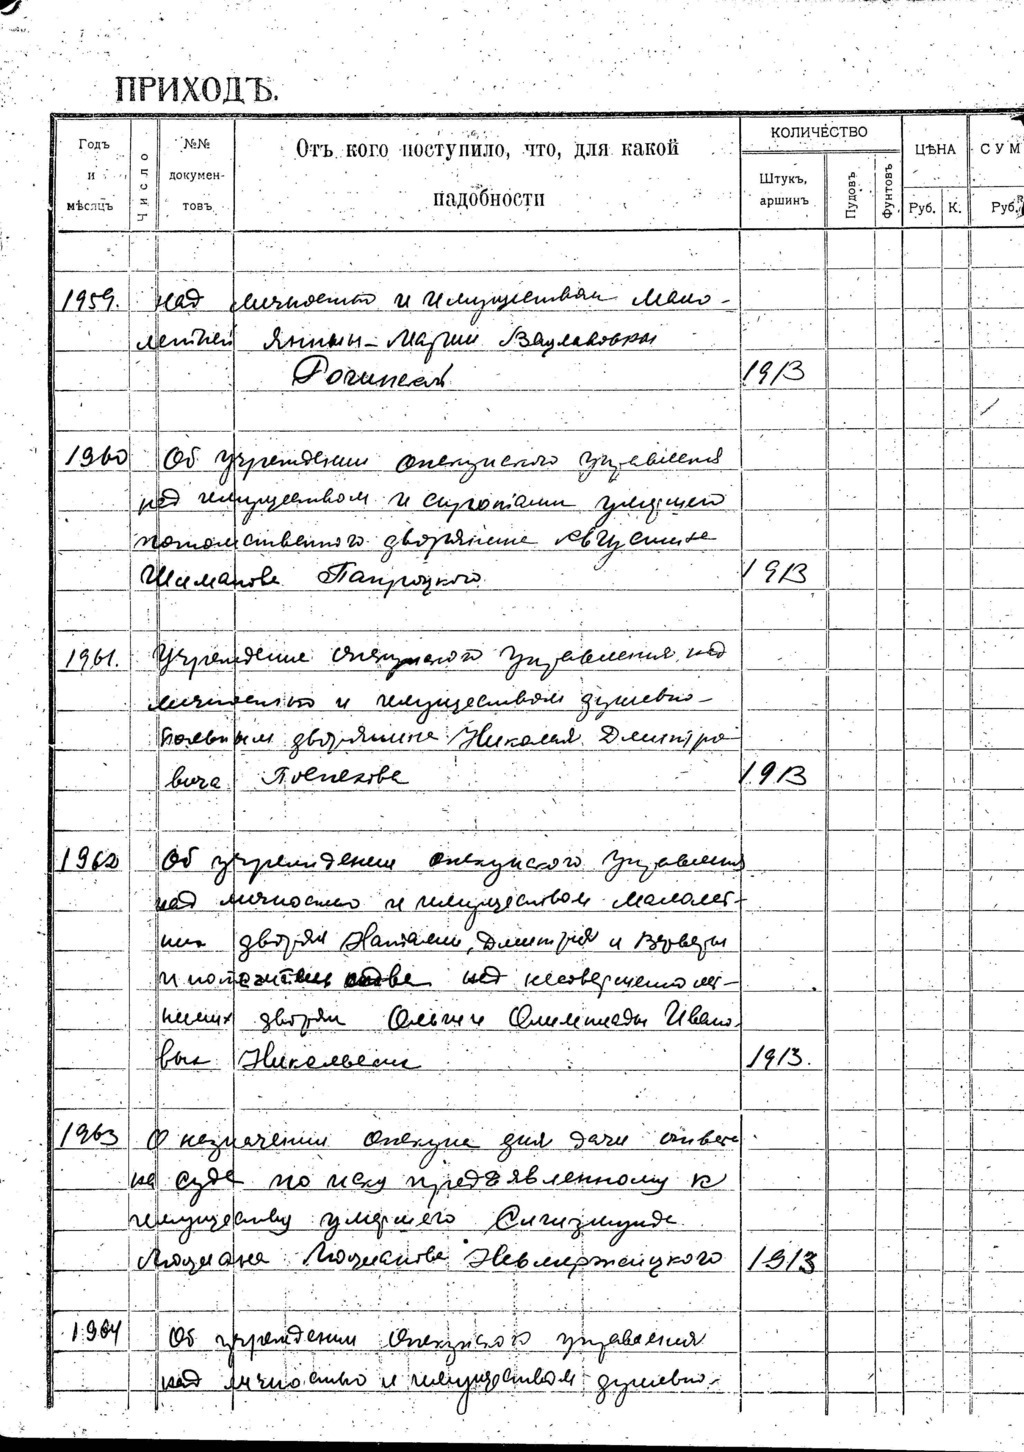 ПРИХОДЪ.
Годъ и мѣсяцъ
Число
№№ докумен-товъ
Отъ кого поступило, что, для какой надобности
КОЛИЧЕСТВО
Штукъ, аршинъ
Пудовъ
Фунтовъ
ЦѢНА
Руб. К.
СУМ
Руб.
1959. над личностью и имуществом мало-
летней Янины-Марии Вацлавовны
Рогинской 1913
1960 Об учреждении опекунского управления
над имуществом и сиротами умершего
потомственного дворянина Августина
Шиманова Папроцкого 1913
1961. Учреждение опекунского управления над
личностью и имуществом душевно-
больным дворянина Николая Дмитро-
вича 1913
1962 Об учреждении опекунского управления
над личностью и имуществом малолет-
них дворян Наталии, Дмитрия и Варвары
и над несовершеннолет-
ними дворян Ольги и Олимпиады Ивано-
вых Никольских 1913.
1963 О назначении опекуна для дачи ответа
на суде по иску предъявленному к
имуществу умершего Сигизмунда
Люциана Люцианова Невмержицкого 1913
1964 Об учреждении опекунского управления
над личностью и имуществом душевно-